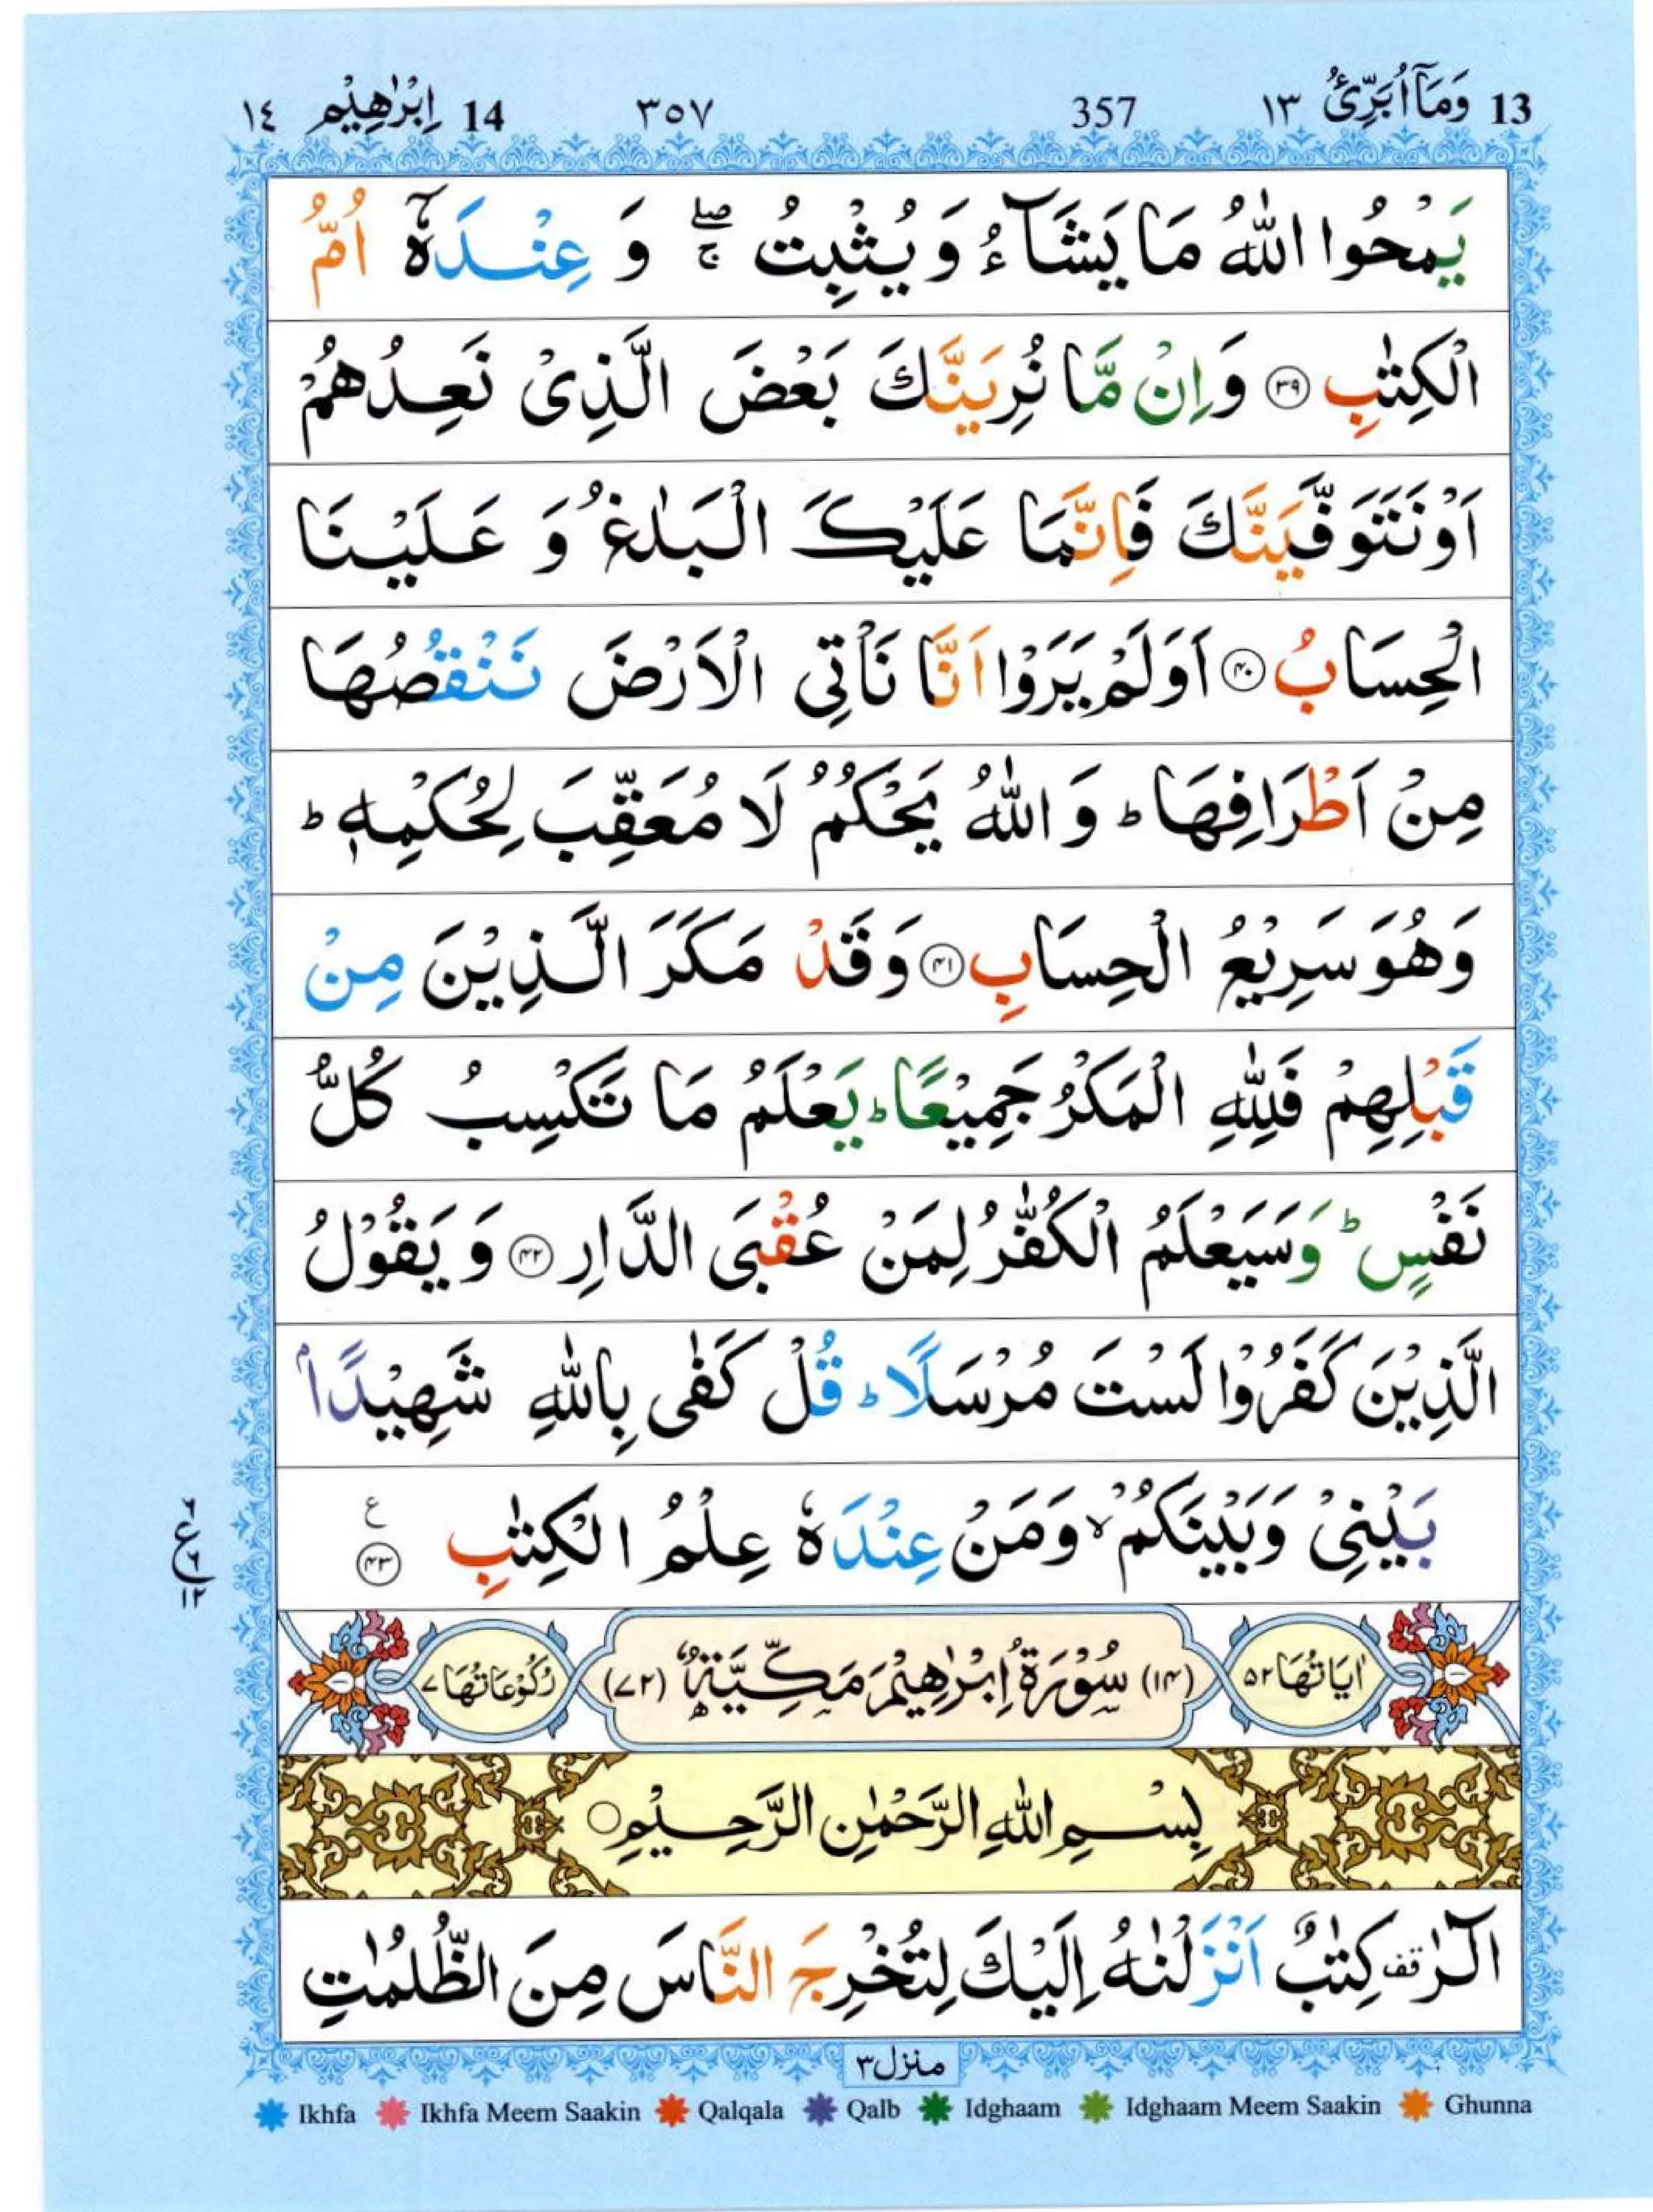 13 وَمَاۤ اُبَرِّئُ ١٣ 357 ٣٥٧ 14 اِبْرٰهِيْم ١٤
يَمْحُوا اللّٰهُ مَا يَشَآءُ وَيُثْبِتُ ۖۚ وَ عِنْدَهٗۤ اُمُّ
الْكِتٰبِ ۝٣٩ وَاِنْ مَّا نُرِيَنَّكَ بَعْضَ الَّذِىْ نَعِدُهُمْ
اَوْ نَتَوَفَّيَنَّكَ فَاِنَّمَا عَلَيْكَ الْبَلٰغُ وَ عَلَيْنَا
الْحِسَابُ ۝٤٠ اَوَلَمْ يَرَوْا اَنَّا نَاْتِى الْاَرْضَ نَنْقُصُهَا
مِنْ اَطْرَافِهَا ؕ وَ اللّٰهُ يَحْكُمُ لَا مُعَقِّبَ لِحُكْمِهٖ ؕ
وَهُوَ سَرِيْعُ الْحِسَابِ ۝٤١ وَقَدْ مَكَرَ الَّذِيْنَ مِنْ
قَبْلِهِمْ فَلِلّٰهِ الْمَكْرُ جَمِيْعًا ؕ يَعْلَمُ مَا تَكْسِبُ كُلُّ
نَفْسٍ ؕ وَسَيَعْلَمُ الْكُفّٰرُ لِمَنْ عُقْبَى الدَّارِ ۝٤٢ وَ يَقُوْلُ
الَّذِيْنَ كَفَرُوْا لَسْتَ مُرْسَلًا ؕ قُلْ كَفٰى بِاللّٰهِ شَهِيْدًاۢ
بَيْنِىْ وَبَيْنَكُمْ ۙ وَمَنْ عِنْدَهٗ عِلْمُ الْكِتٰبِ ۝٤٣ ع
٦ ع ٦ ١٢
اٰيَاتُهَا ٥٢ (١٤) سُوْرَةُ اِبْرٰهِيْمَ مَكِّيَّةٌ (٧٢) رُكُوْعَاتُهَا ٧
بِسْمِ اللّٰهِ الرَّحْمٰنِ الرَّحِيْمِ ○
الٓرٰ قف كِتٰبٌ اَنْزَلْنٰهُ اِلَيْكَ لِتُخْرِجَ النَّاسَ مِنَ الظُّلُمٰتِ
منزل ٣
Ikhfa Ikhfa Meem Saakin Qalqala Qalb Idghaam Idghaam Meem Saakin Ghunna